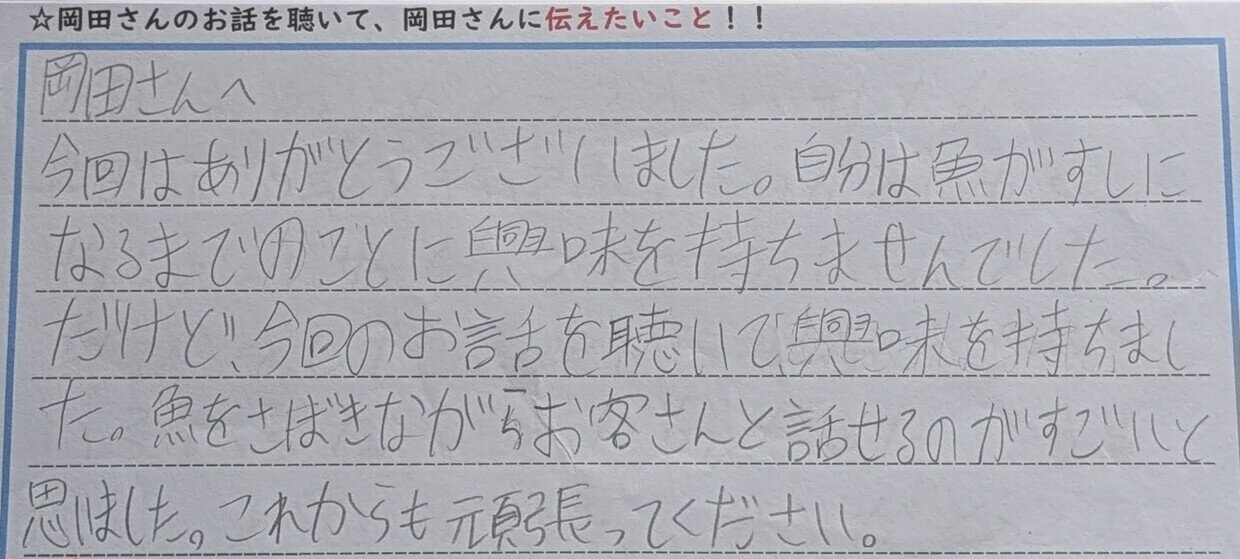 ☆岡田さんのお話を聴いて、岡田さんに伝えたいこと！！
岡田さんへ
今回はありがとうございました。自分は魚がすしに
なるまでのことに興味を持ちませんでした。
だけど、今回のお話を聴いて、興味を持ちまし
た。魚をさばきながらお客さんと話せるのがすごいと
思いました。これからも頑張ってください。